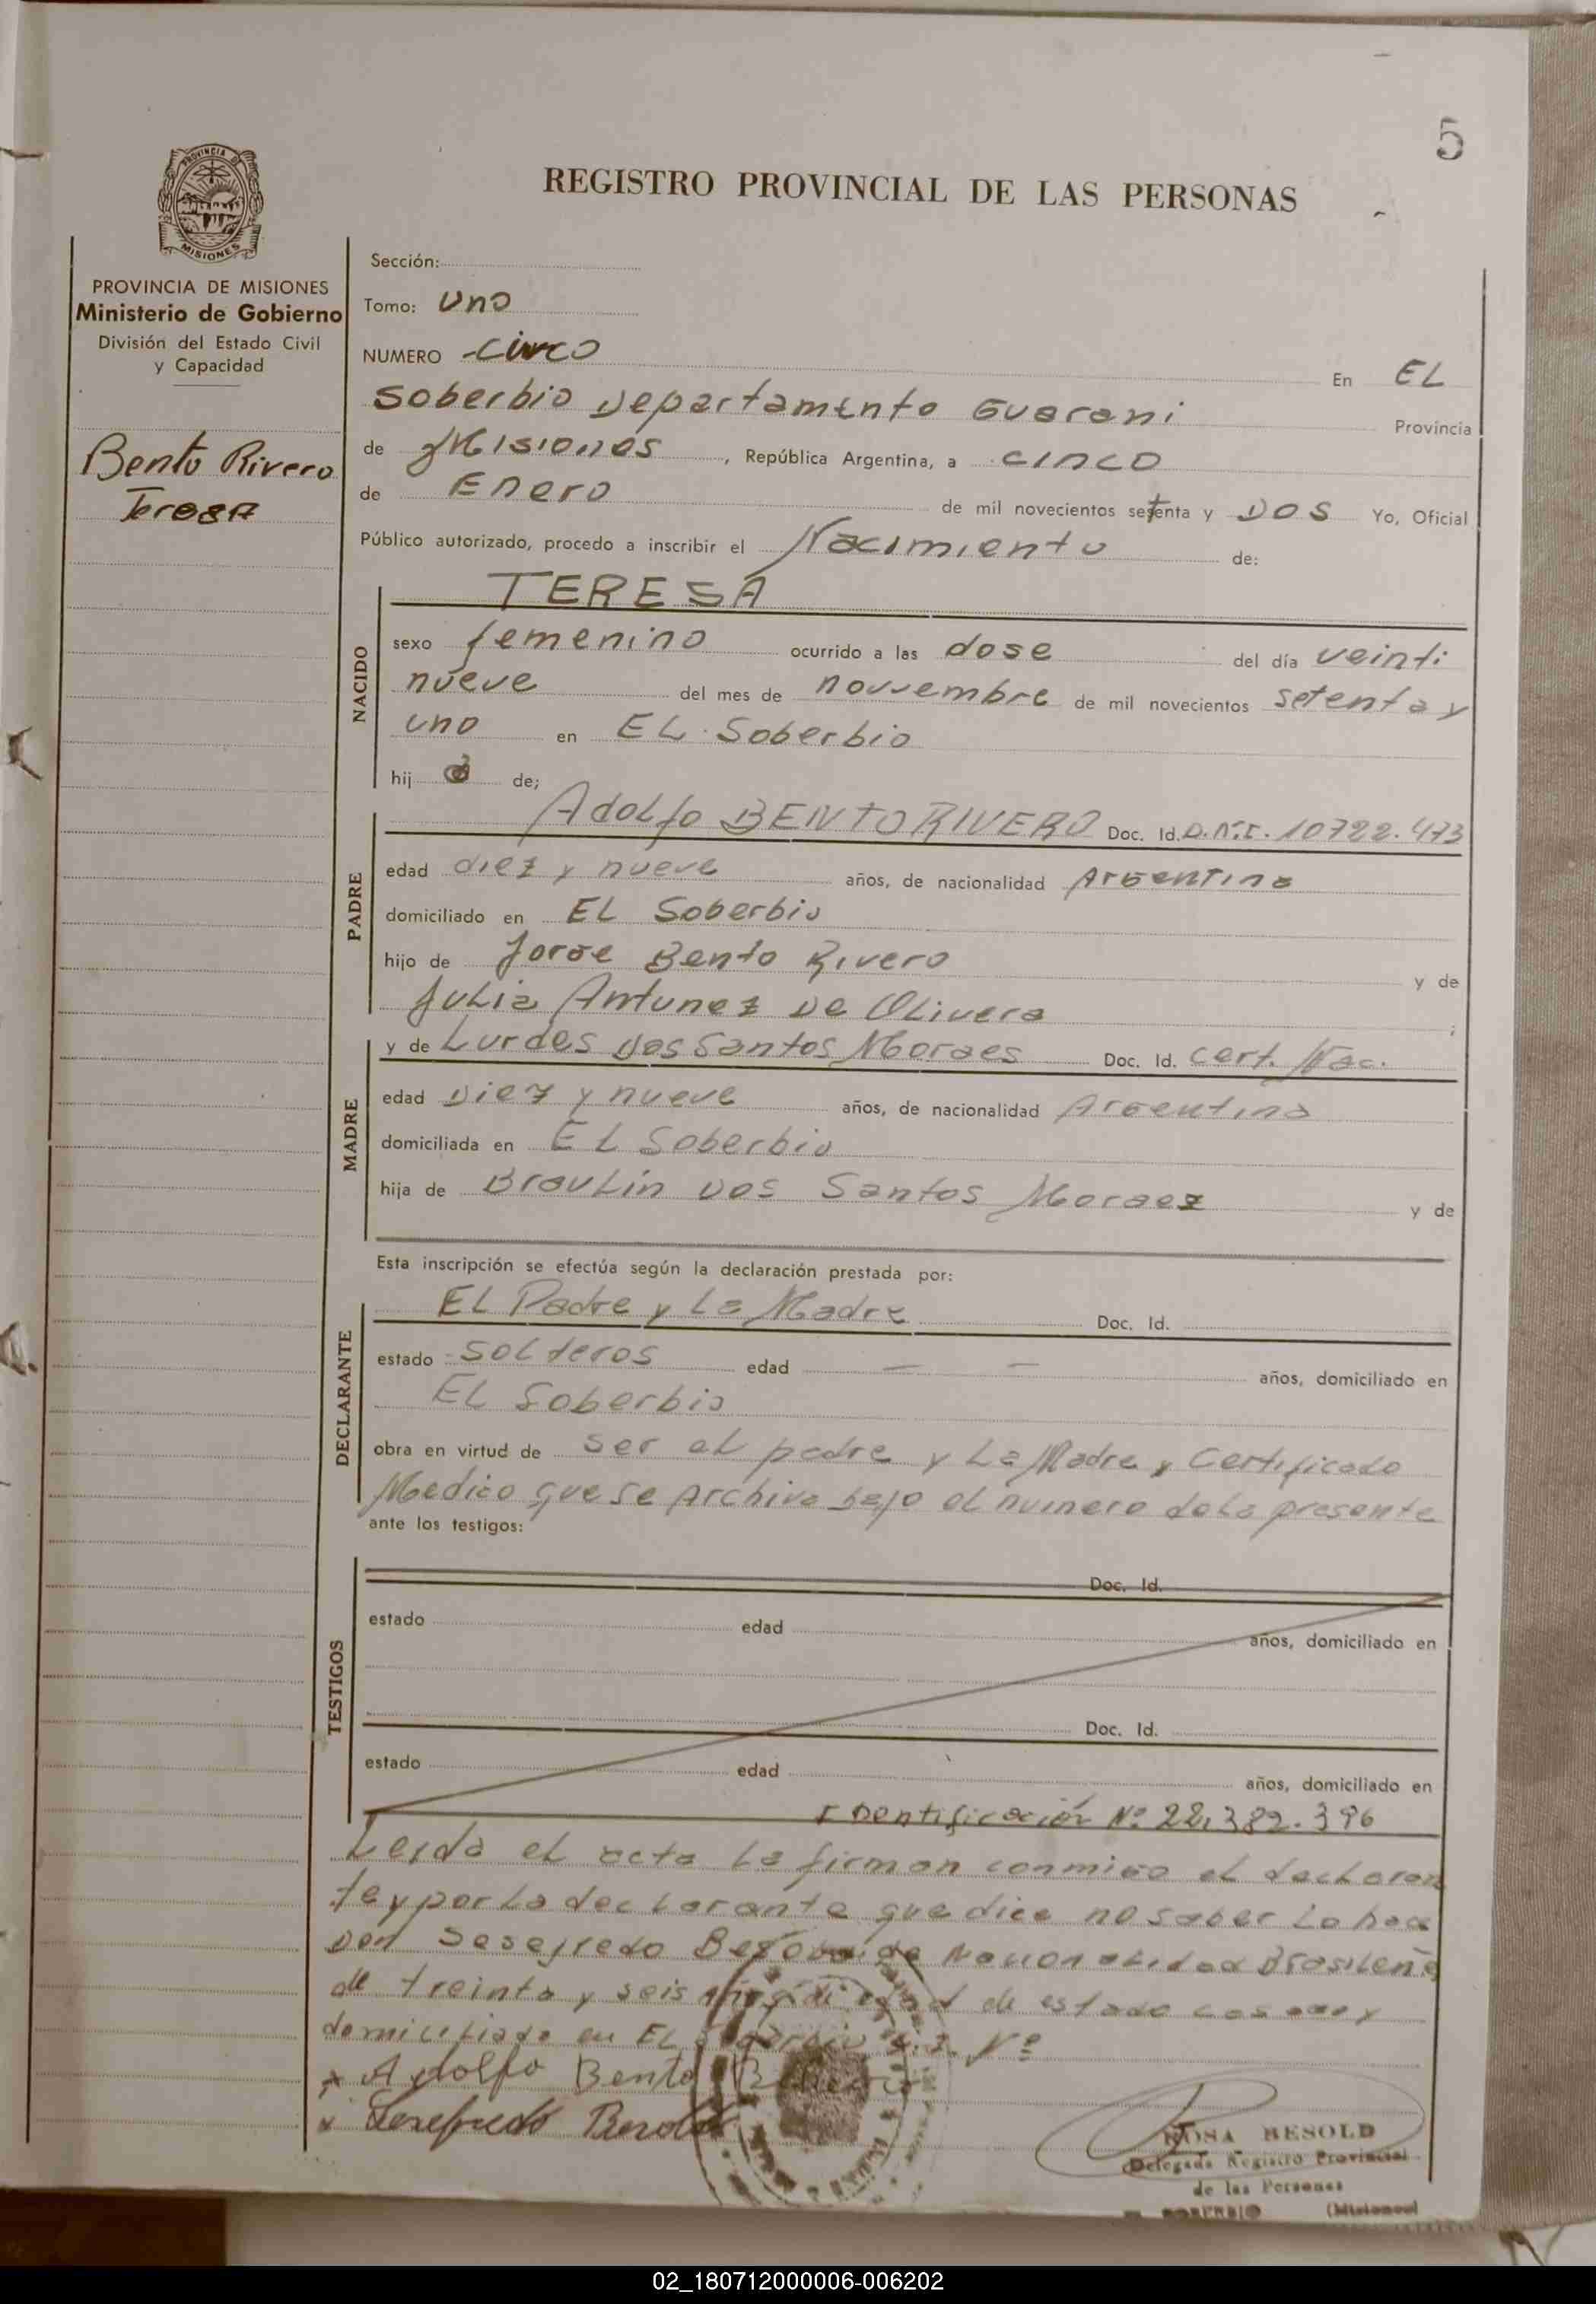 5
REGISTRO PROVINCIAL DE LAS PERSONAS
PROVINCIA DE
MISIONES
PROVINCIA DE MISIONES
Ministerio de Gobierno
División del Estado Civil
y Capacidad
Bento Rivero
Teresa
Sección:
Tomo: Uno
NUMERO -cinco
En EL
Soberbio Departamento Guarani Provincia
de Misiones, República Argentina, a cinco
de Enero de mil novecientos setenta y DOS Yo, Oficial
Público autorizado, procedo a inscribir el Nacimiento de:
NACIDO
TERESA
sexo femenino ocurrido a las dose del día veinti
nueve del mes de nouvembre de mil novecientos setenta y
uno en EL Soberbio
hij a de;
PADRE
Adolfo BENTO RIVERO Doc. Id. D.N.I. 10722.473
edad diez y nueve años, de nacionalidad Argentina
domiciliado en EL Soberbio
hijo de Jorge Bento Rivero y de
Julia Antunez De Olivera ;
MADRE
y de Lurdes Dos Santos Moraes Doc. Id. Cert. Nac.
edad Diez y nueve años, de nacionalidad Argentina
domiciliada en EL Soberbio
hija de Braulin Dos Santos Moraez y de
Esta inscripción se efectúa según la declaración prestada por:
DECLARANTE
EL Padre y La Madre Doc. Id.
estado Solteros edad — — años, domiciliado en
EL Soberbio
obra en virtud de ser el padre y La Madre y Certificado
Medico que se Archiva bajo el numero de La presente
ante los testigos:
TESTIGOS
Doc. Id.
estado edad años, domiciliado en
Doc. Id.
estado edad años, domiciliado en
Identificación Nº 22.382.396
Leida el acta La firman conmigo el declaran
te y por La declarante que dice no saber Lo hace
Don Sesefredo de Nacionalidad Brasileña
de treinta y seis años de edad de estado casado y
domiciliado en EL Soberbio Nº
x Adolfo Bento Rivero
x Sesefredo
ROSA BESOLD
Delegada Registro Provincial
de las Personas
SOBERBIO (Misiones)
02_180712000006-006202